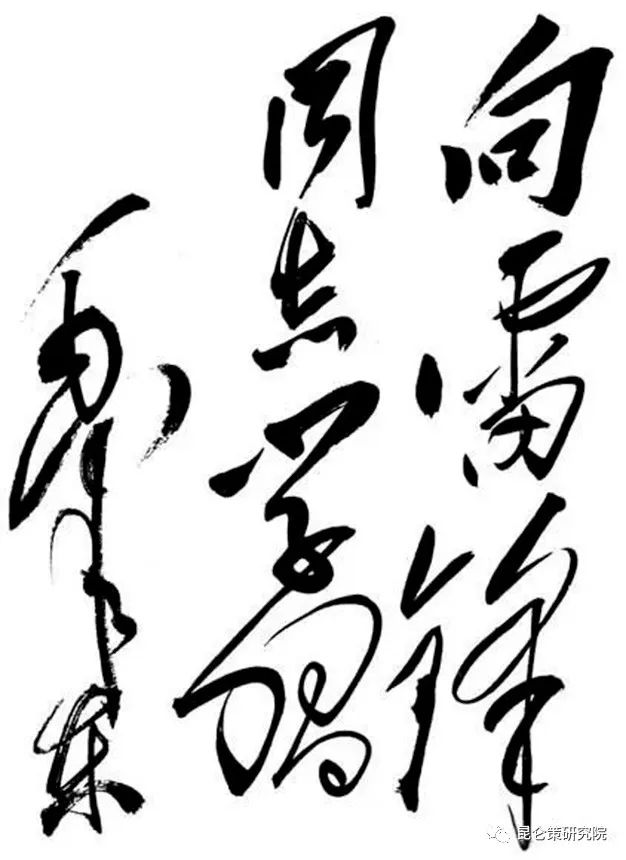 向雷锋
同志学习
毛泽东
昆仑策研究院